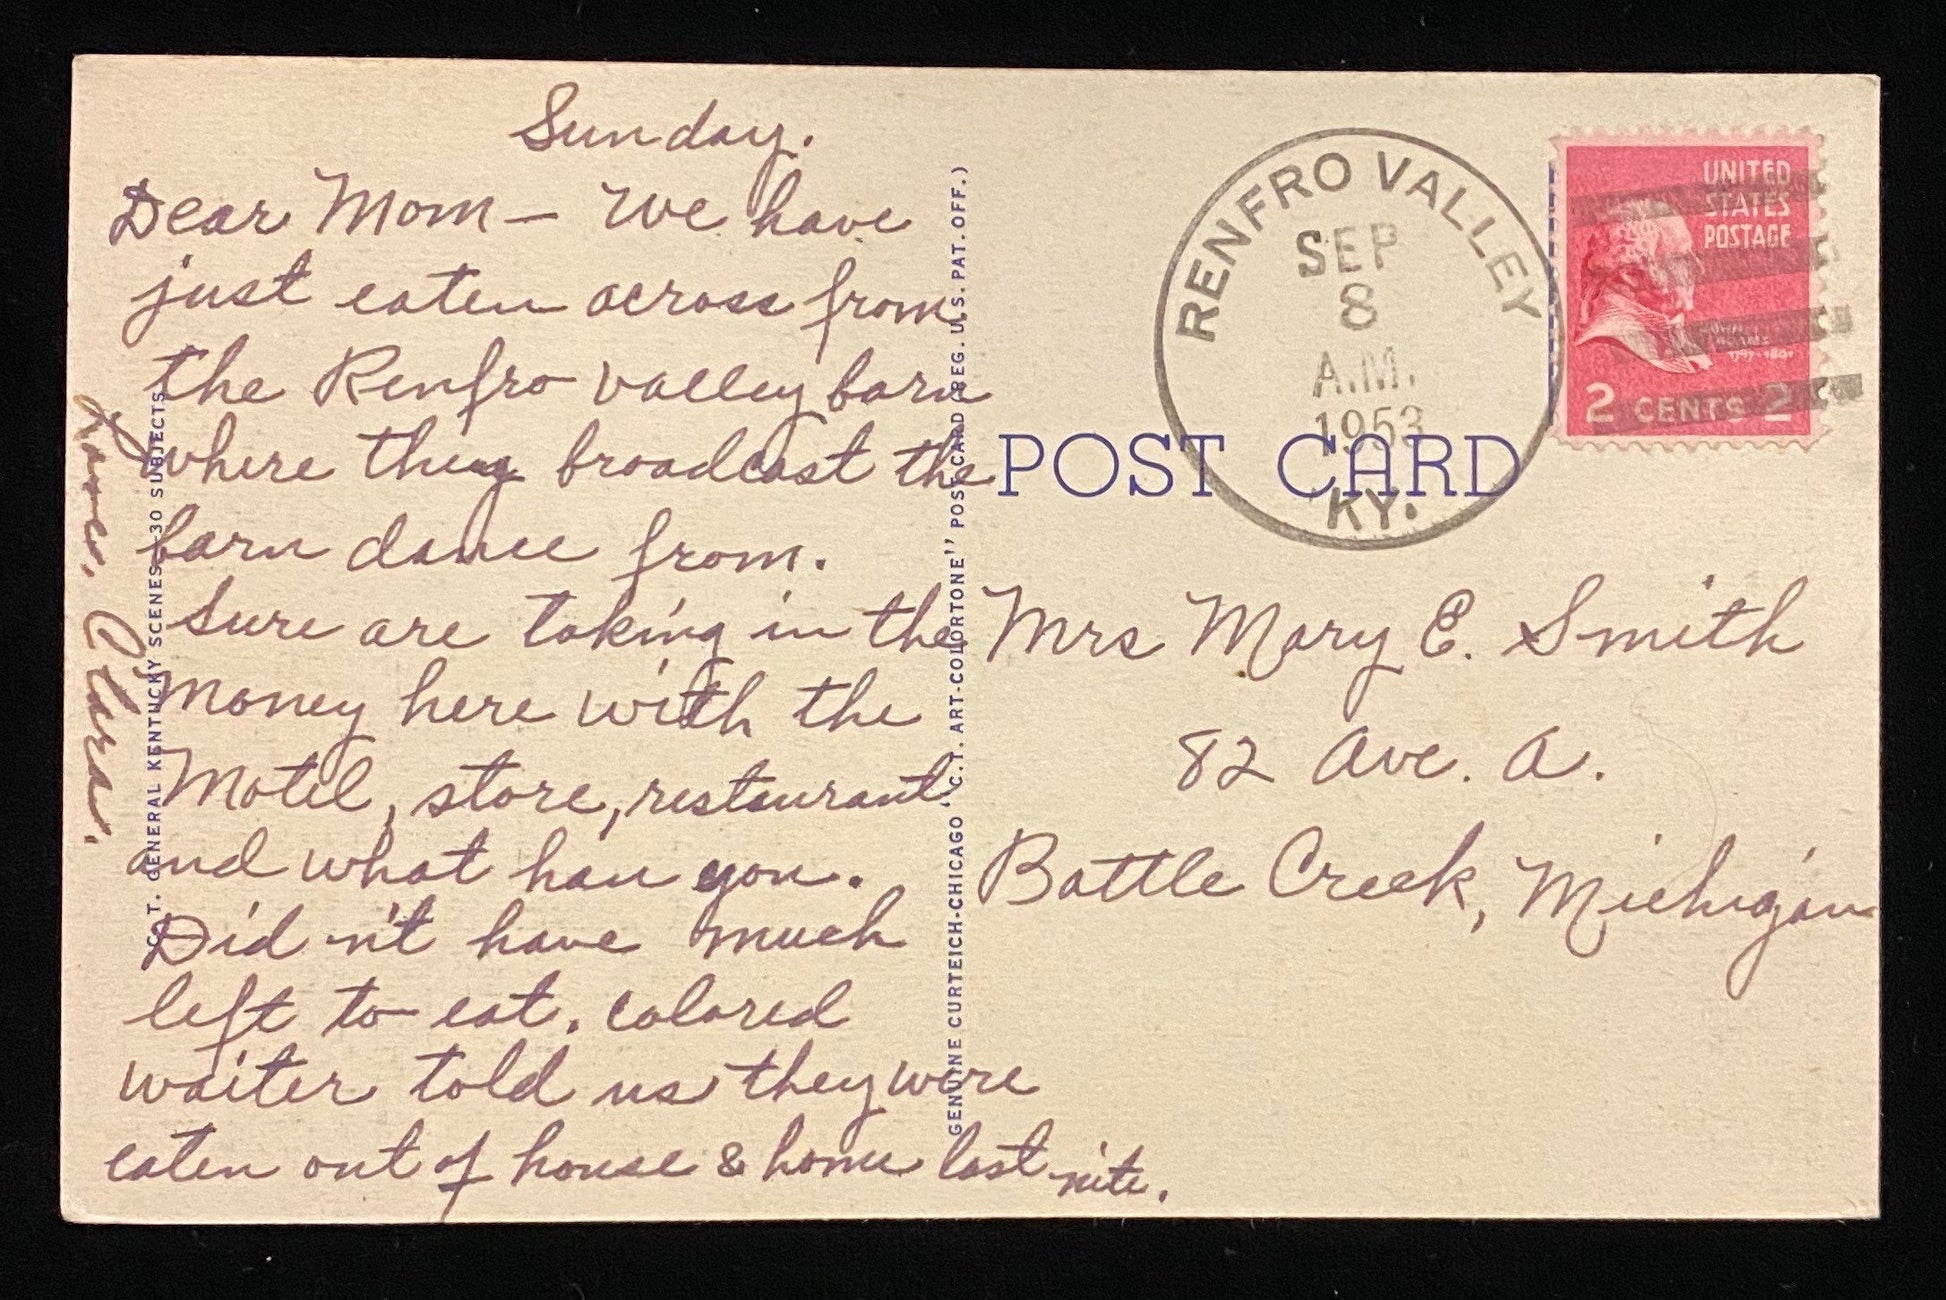 Sunday.
Dear Mom – We have
just eaten across from
the Renfro Valley barn
where they broadcast the
barn dance from.
Sure are taking in the
money here with the
Motel, store, restaurant
and what hav you.
Didn't have much
left to eat. Colored
waiter told us they were
eaten out of house & home last nite.
Love, Clara.
C. T. GENERAL KENTUCKY SCENES-30 SUBJECTS
GENUINE CURTEICH-CHICAGO "C.T. ART-COLORTONE" POST CARD (REG. U.S. PAT. OFF.)
POST CARD
RENFRO VALLEY
SEP
8
A.M.
1953
KY.
UNITED
STATES
POSTAGE
JOHN
ADAMS
1797-1801
2 CENTS 2
Mrs Mary E. Smith
82 Ave. A.
Battle Creek, Michigan